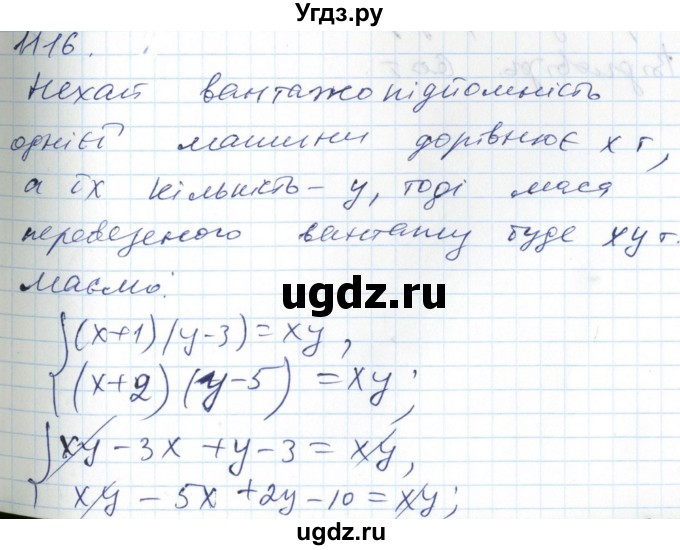 Угдз.ру
1116.
Нехай вантажопідйомність
однієї машини дорівнює x т,
а їх кількість – y, тоді маса
перевезеного вантажу буде xy т.
Маємо:
ugdz.ru
{(x+1)(y-3) = xy,
(x+2)(y-5) = xy;
{xy - 3x + y - 3 = xy,
xy - 5x + 2y - 10 = xy;
ugdz.ru